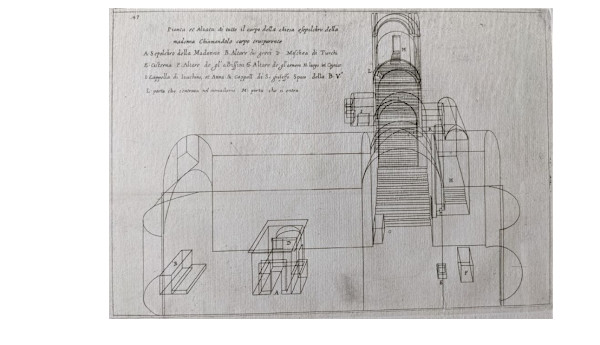 45
Pianta et Alzato di tutto il corpo della chiesa e sepolcro della
madonna Chiamandola corpo trasparente
A. Sepolcro della Madonna B. Altare di greci D Meschea di Turchi
E. Cisterna F. Altare de gl'Abissini G. Altare de gl'armeni H.
I. Cappella di Ioachino, et Anna K. Cappella di S. Gioseffo Sposo della B. V.
L. porta che M. porta che si entra